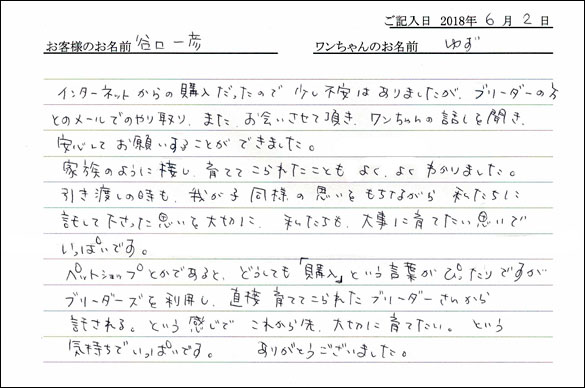 ご記入日 2018年 6 月 2 日
お客様のお名前 谷口一彦 ワンちゃんのお名前 ゆず
インターネットからの購入だったので 少し不安はありましたが、ブリーダーの方
とのメールでのやり取り、また、お会いさせて頂き、ワンちゃんの話しを聞き、
安心してお願いすることができました。
家族のように接し、育ててこられたことも よく、よくわかりました。
引き渡しの時も、我が子同様の思いをもちながら 私たちに
託して下さった思いを大切に、私たちも、大事に育てたい思いで
いっぱいです。
ペットショップとかであると、どうしても「購入」という言葉がぴったりですが
ブリーダーズを利用し、直接育ててこられたブリーダーさんから
託される。という感じで これから先、大切に育てたい。という
気持ちでいっぱいです。 ありがとうございました。